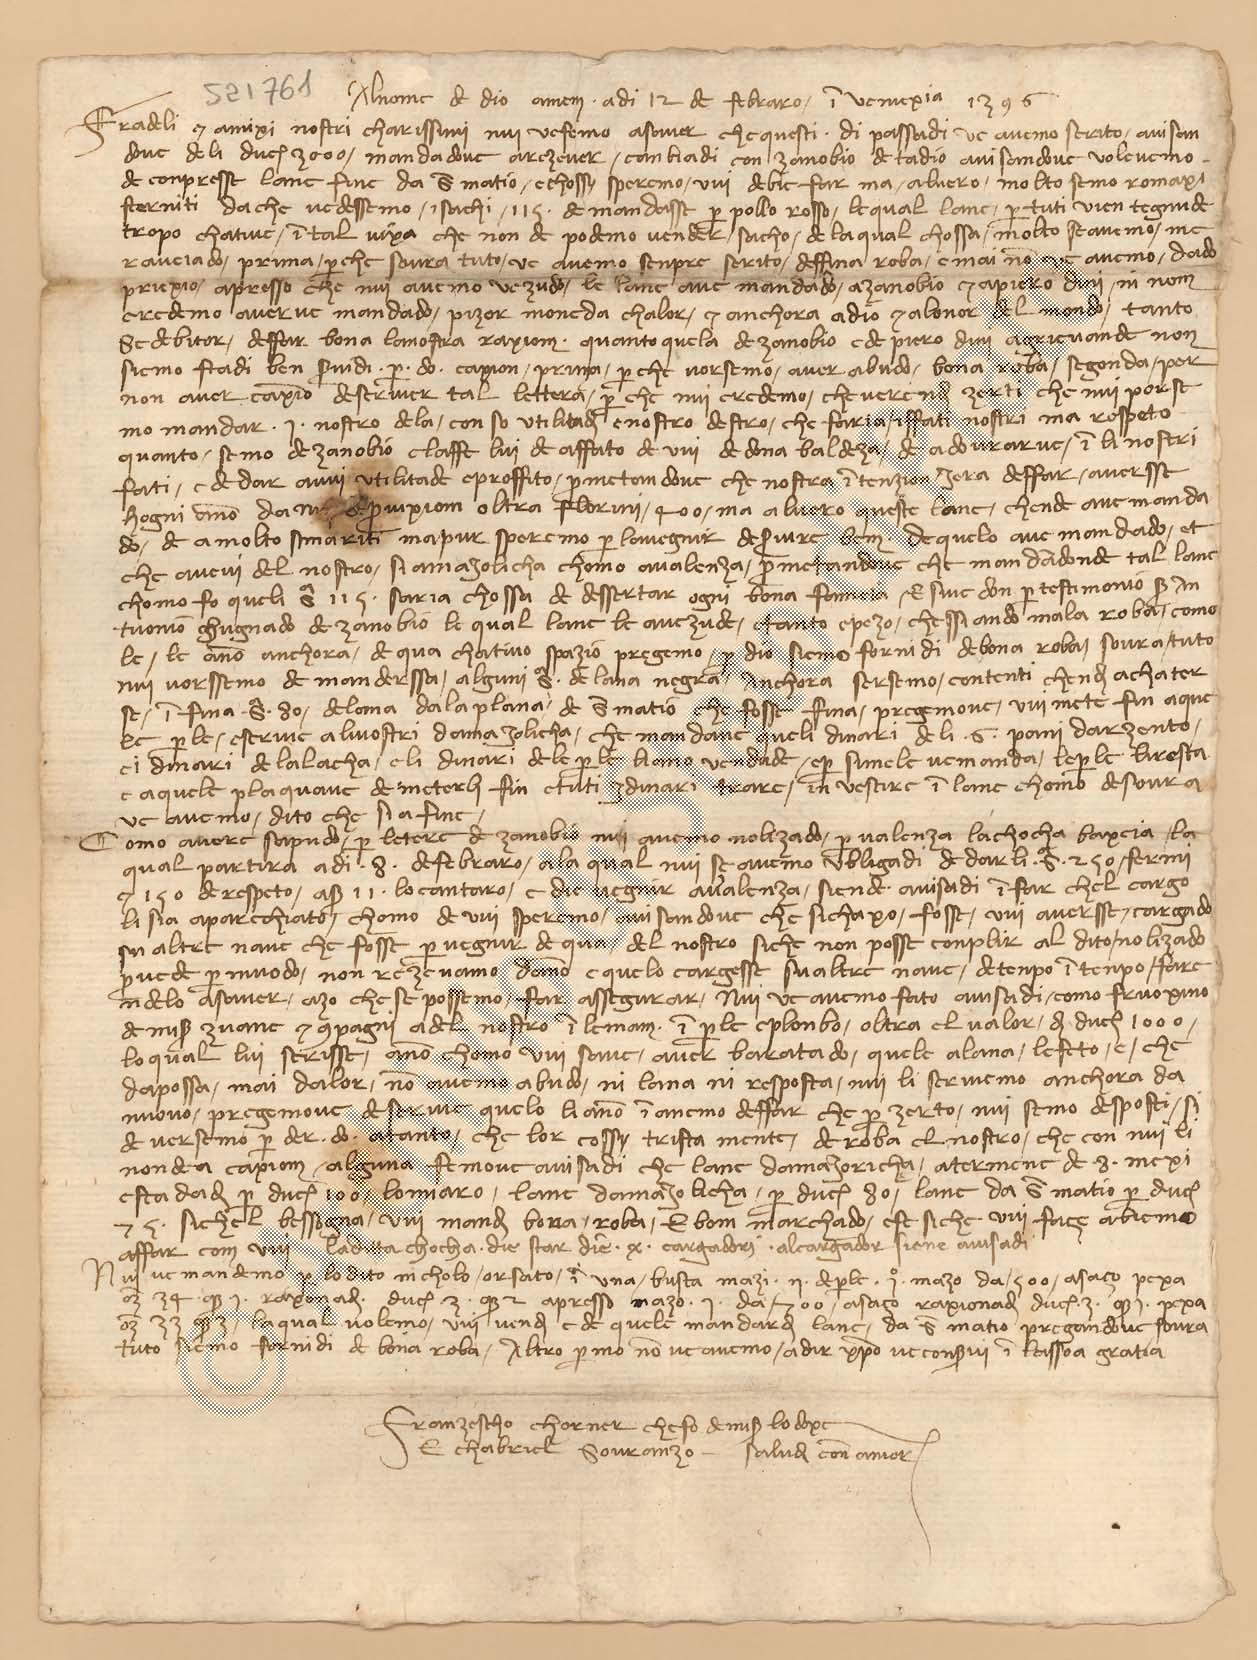 521761
Al nome de dio amem · adi 12 de febraro / i venexia 1396
Fradeli 7 amixi nostri charissimi nui ve femo asaver che questi · di passadi ve avemo scrito / avisan
dove deli duch 3000 / mandadove arezever / canbiadi con zanobio de tadio avisandove volevemo
de conpresse lane fine da s matio / e chossy speremo / vui debie far ma / alvero / molto semo romaxi
sterniti da che vedessemo / i sachi / 115 · de mandasse p pollo rosso / le qual lane / p tuti vien tegnude
tropo chative / i tal vixa che non de podemo vender / sacho / de la qual chossa / molto se avemo / me
raveiado / prima / p che sovra tuto / ve avemo senpre scrito / deffina roba / e mai no ve avemo / dado
priexio / apresso che nui avemo vezudo / le lane ave mandado / a zanobio 7 a piero dini / ni nom
credemo averve mandado / pizor moneda cha lor / 7 anchora a dio 7 al onor del mondo / tanto
se debitor / deffar bona la nostra raxiom · quanto quela de zanobio e de piero dini agrievande non
siemo stadi ben servidi · p · do · caxion / prima / p che vorsemo / aver abudo / bona roba / segonda / per
non aver caxio de scriver tal lettera / p che nui credemo / che veremd zerti che nui porse
mo mandar · i · nostro de la / con so utilitad e nostro destro / che faria / i ffati nostri ma respeto
quanto / semo de zanobio e lasse lui de affato de vui de dona baldeza / de adovrarve / i li nostri
fati / e de dar a vui utilitade e proffito / prometandove che nostra itenzion / iera deffar / aversse
hogni ano da nui de provixiom oltra florini / 400 / ma alvero queste lane / chende ave manda
do / de a molto smariti ma pur speremo p lo avegnir de servire bem · de quelo ave mandado / et
che avevi del nostro / si a mazolicha chomo a valenza / prometandove che mandadonde tal lane
chomo fo queli s 115 · saria chossa de dessertar ogni bona fameia E sive don p testimonio s An
tuonio ghugnado de zanobio le qual lane le ave zude / e tanto e pezo / chessiando mala roba / como
le / le ano anchora / de qua chativo spazio pregemo / p dio siemo fornidi de bona roba / sovra / tuto
nui vorssemo de manderssa / alguni s · de lana negra / Anchora sersemo / contenti chend achater
se / i fina · s · 80 / de lana da la plana / de s matio che fosse fina / pregemove / vui mete fin a que
le p le / e scrive a li vostri da mazolicha / che mandave queli dinari de li · 6 · pani darzento /
e i dinari de la lacha / e li dinari de le p le li ano vendade / e p simele ve manda / le p le li resta
e a quele placquave de meterli fin e tuti 7 dinari trare / in vestire i lane chomo de sovra
ve avemo / dito che si a fine /
Como avere sapudo / p letere de zanobio nui avemo nolizado / p valenza la chocha baxeia / la
qual partira adi · 8 · de febraro / a la qual nui se avemo ubligadi de darli · s · 250 / fermi
7 150 de respeto / a s 11 · lo cantaro / e die vegnir a valenza / siende · avisadi i far chel cargo
li sia aparechiato / chomo de vui speremo / avisandove che si chaxo / fosse / vui aversse / cargado
su altre nave che fosse p vegnir de qua / del nostro siche non posse conplir al dito / nolizado
prevede p muodo / non rezevamo dano e quelo cargesse su altre nave / de tenpo i tenpo / fare
mdelo asaver / azo che se possemo / far assegurar / Nui ve avemo fato avisadi / como fruoxino
de mis zuane 7 conpagni a del nostro i le mam · i p le e plonbo / oltra el valor / d duch 1000 /
lo qual lui scrisse / ano chomo vui save / aver baratado / quele a lana / lefeto / e / che
dapossa / mai da lor / no avemo abudo / ni lana ni resposta / nui li scrivemo anchora da
nuovo / pregemove de scrive quelo li ano i anemo deffar che p zerto / nui semo desposti / si
de versemo p der · do · a tanto / che lor cossy trista mente / de roba el nostro / che con nui li
non de a caxiom alguna femove avisadi che lane da mazoricha / a termene de 8 · mexi
e sta dad p duch 100 lo miaro / lane da mazo licha / p duch 80 / lane da s matio p duch
75 · sichel bessogna / vui mand bona / roba / E bom marchado / e se siche vui face abiemo
affar com vui la ditta chocha · die star die · x · cargadori · al cargador siene avisadi
Nui ve mandemo p lo dito nicholo / orsato / i una / busta mazi · ii · de p le · i · mazo da / 500 / a sazo pexa
oz 34 · q i · raxonad · duch 3 · q 2 apresso mazo · i · da / 700 / a sazo raxionad duch 3 · q i · pexa
oz 33 q 3 / la qual volemo / vui vend e de quele mandard lane / da s matio pregandove sovra
tuto siemo fornidi de bona roba / Altro p mo no ve avemo / a dir xpo ve conservi i la ssoa gratia
Franzescho chorner che fo de mis lo doxe
E chabriel Sovranzo — salud con amor